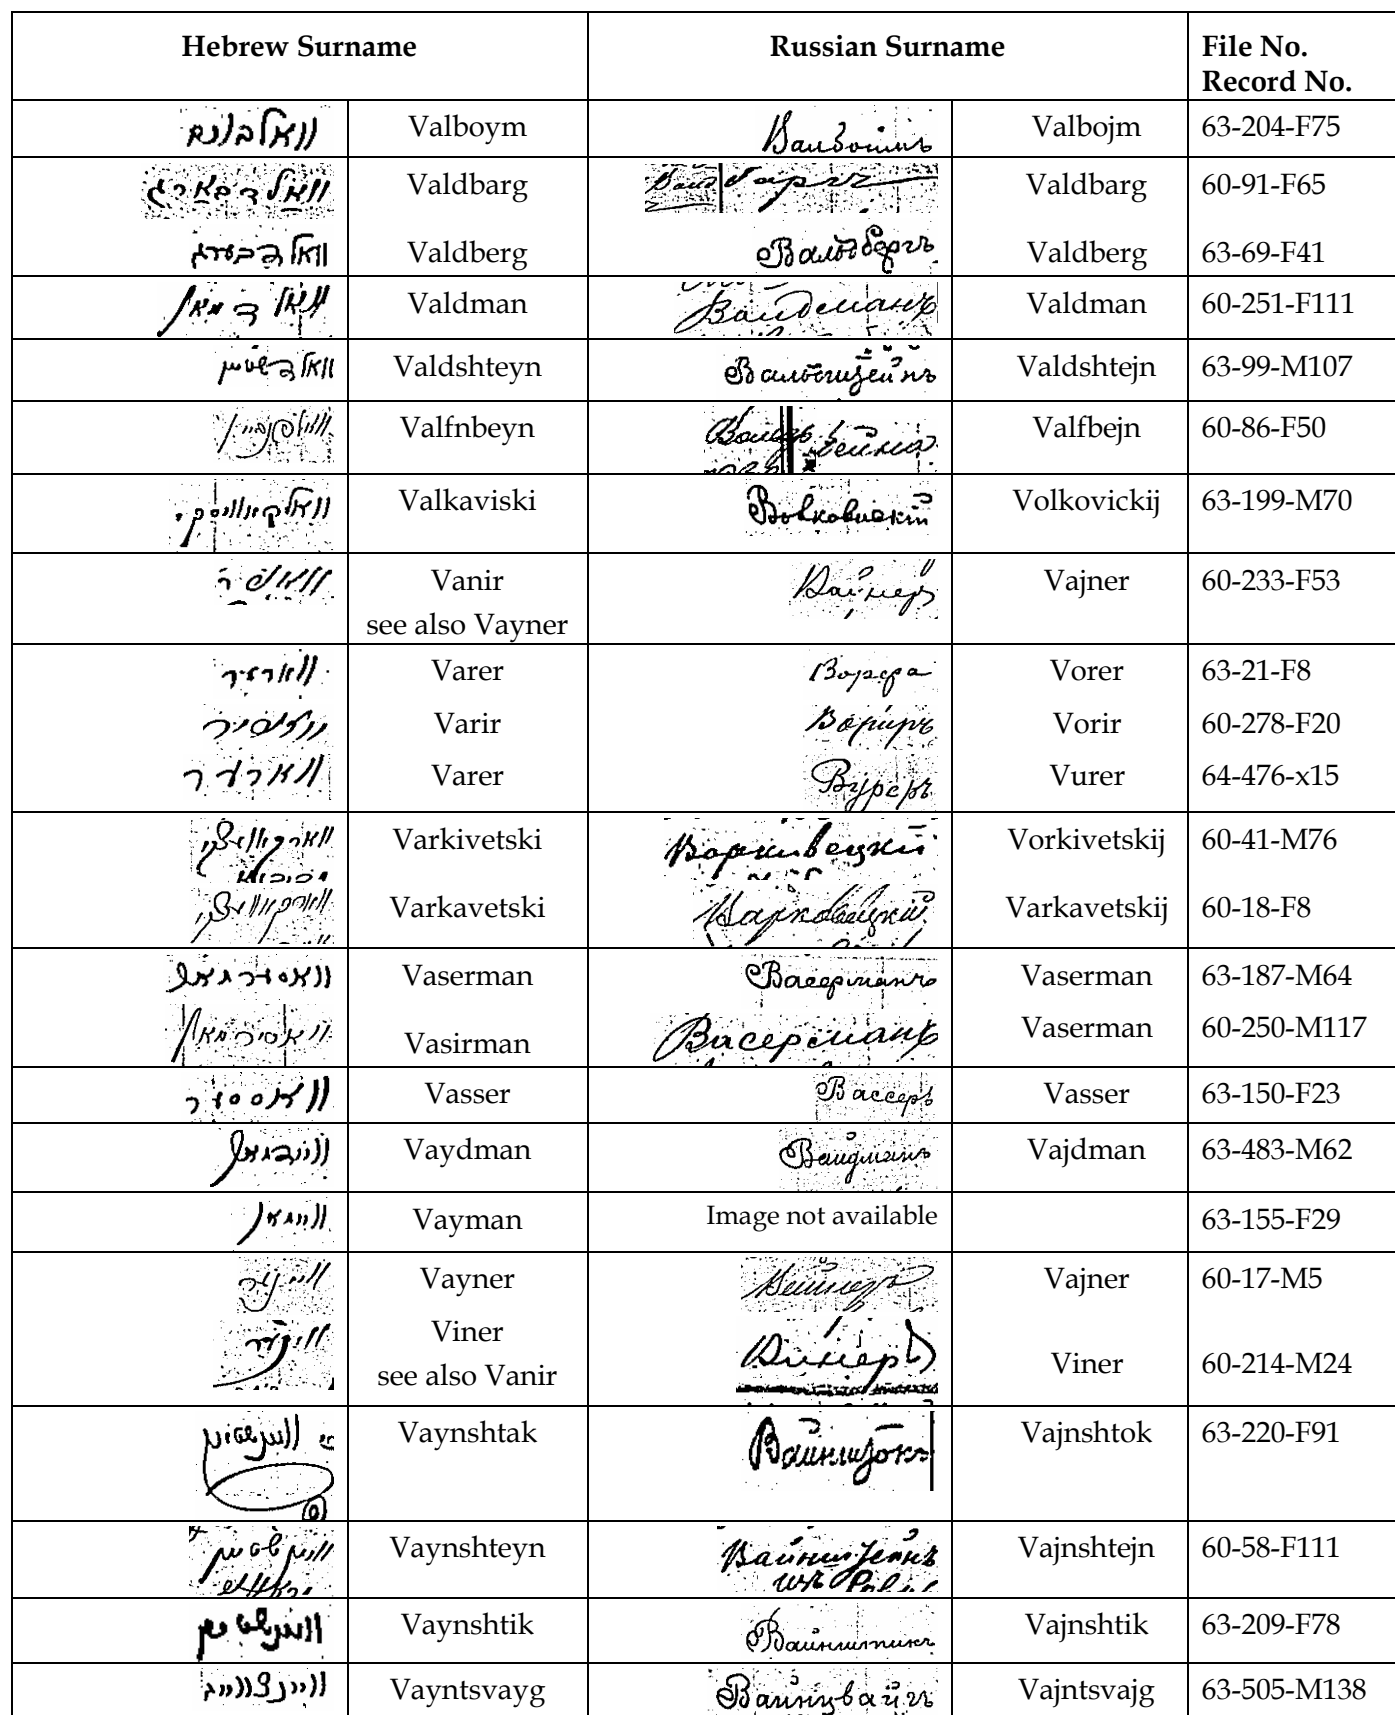 Hebrew Surname Russian Surname File No.
Record No.
װאלבױם Valboym Valbojm 63-204-F75
װאלדבארג Valdbarg Valdbarg 60-91-F65
װאלדבערג Valdberg Вальдбергъ Valdberg 63-69-F41
װאלדמאן Valdman Valdman 60-251-F111
װאלדשטײן Valdshteyn Вальдштейнъ Valdshtejn 63-99-M107
Valfnbeyn Valfbejn 60-86-F50
Valkaviski Волковискій Volkovickij 63-199-M70
װאניר Vanir Вайнеръ Vajner 60-233-F53
see also Vayner
Varer Ворера Vorer 63-21-F8
Varir Вориръ Vorir 60-278-F20
װארער Varer Вуреръ Vurer 64-476-x15
Varkivetski Воркивецкій Vorkivetskij 60-41-M76
Varkavetski Varkavetskij 60-18-F8
װאסערמאן Vaserman Васерманъ Vaserman 63-187-M64
װאסירמאן Vasirman Васерманъ Vaserman 60-250-M117
װאססער Vasser Вассеръ Vasser 63-150-F23
Vaydman Вайдманъ Vajdman 63-483-M62
װײמאן Vayman Image not available 63-155-F29
װײנער Vayner Vajner 60-17-M5
Viner
see also Vanir Винеръ Viner 60-214-M24
Vaynshtak Вайнштокъ Vajnshtok 63-220-F91
װײנשטײן Vaynshteyn Вайнштейнъ Vajnshtejn 60-58-F111
Vaynshtik Вайнштикъ Vajnshtik 63-209-F78
װײנצװײג Vayntsvayg Вайнцвайгъ Vajntsvajg 63-505-M138